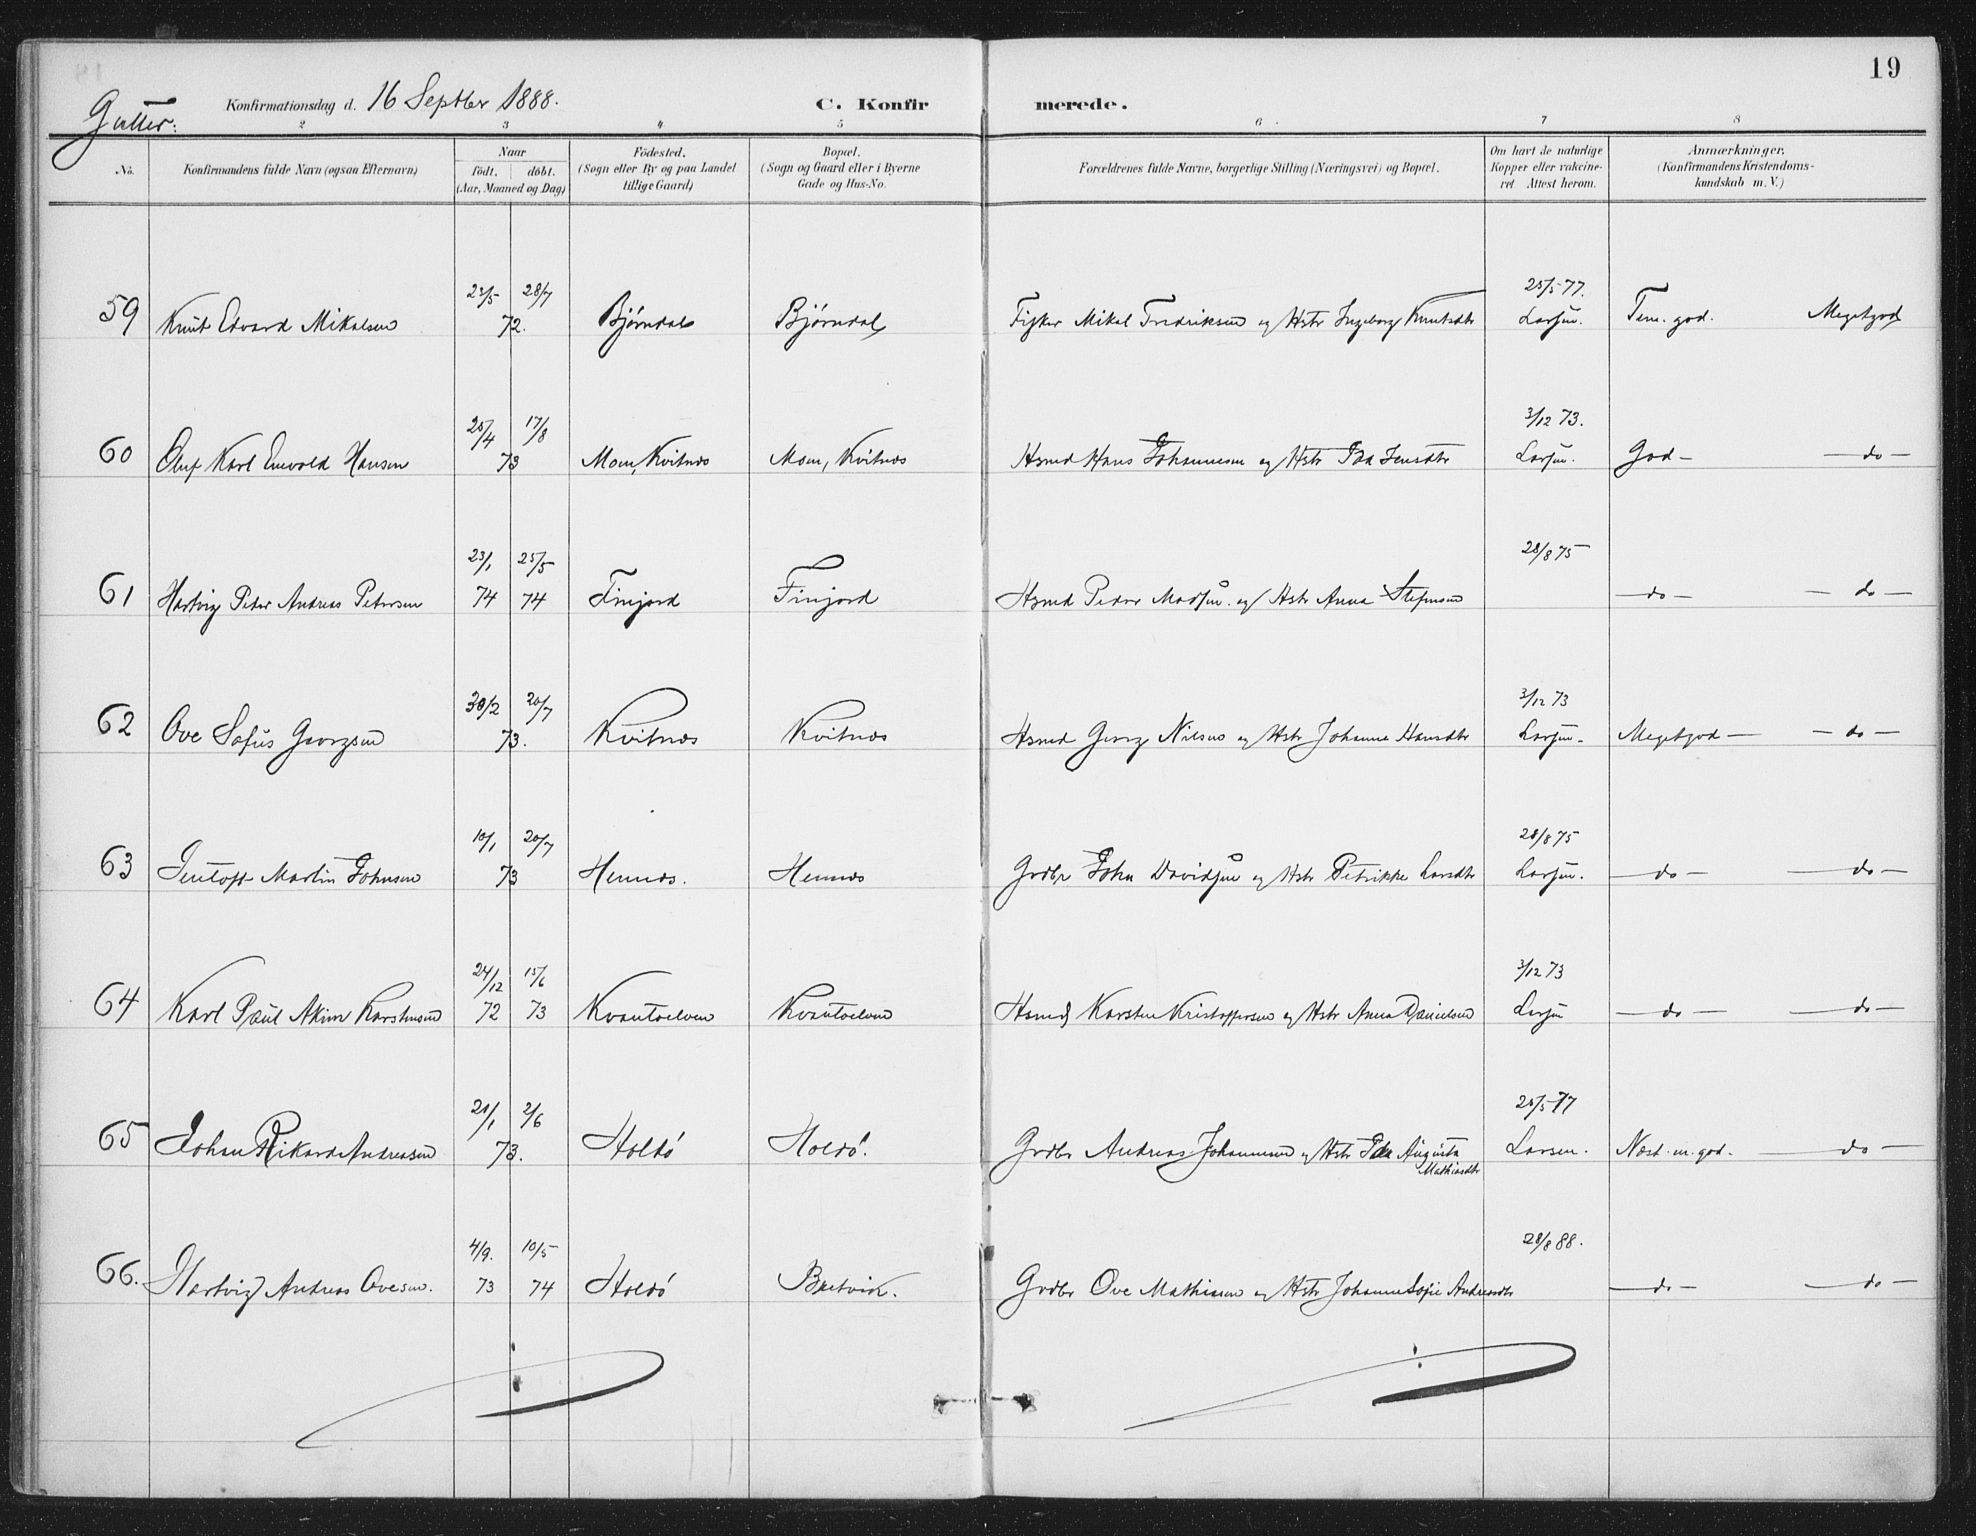 19
Gutter:
Konfirmationsdag d. 16 Septbr 1888.
C. Konfir merede.
2 3 4 5 6 7 8
No. Konfirmandens fulde Navn (ogsaa Efternavn) Naar født. døbt. (Aar, Maaned og Dag) Födested. (Sogn eller By og paa Landet tillige Gaard) Bopæl. (Sogn og Gaard eller i Byerne Gade og Hus-No. Forældrenes fulde Navne, borgerlige Stilling (Næringsvei) og Bopæl. Om havt de naturlige Kopper eller vakcineret Attest herom. Anmærkninger. (Konfirmandens Kristendomskundskab m. V.)
23/5 28/7 25/5 77.
59 Knut Edvard Mikalsen 72. Bjørndal Bjørndal Fisker Mikal Fredriksen og Hstr Ingeborg Knutsdtr Larsen. Tem. god. Megetgod
25/4 17/8 3/12 73.
60 Oluf Karl Enevold Hansen 73 Moen, Kvitnæs Moen, Kvitnæs Hsmd Hans Johannesen og Hstr Ida Jensdtr Larsen. God — — do —
23/1 25/5 28/8 75
61 Hartvig Peter Andreas Petersen 74 74 Finjord Finjord Hsmd Peder Madsen og Hstr Anna — do — — do —
30/2 20/7 3/12 73
62 Ove Sofus Georgsen 73. Kvitnæs Kvitnæs Hsmd Georg Nilsen og Hstr Johanna Hansdtr Larsen. Megetgod — — do —
10/1 20/7 28/8 75
63 Martin Johnsen 73 Hennes. Hennes Grdbr John Davidsen og Hstr Petrikke Larsdtr Larsen. — do — — do —
24/12 15/6 3/12 73
64 Karl Paul Akim Karstensen 72 73 Kvantoelven Kvantoelven Hsmd Karsten Kristoffersen og Hstr Anna Danielsen Larsen — do — — do —
21/1 2/6 25/5 77
65 Johan Rikard Andreasen 73. Holdö Holdö. Grdbr Andreas Johannesen og Hstr Ida Augusta Mathiasdtr Larsen. Næst. m. god. — do —
4/9. 10/5 28/8 88.
66. Hartvig Andreas Ovesen. 73 74 Holdö Bretvik. Grdbr Ove Mathisen og Hstr Johanne Sofie Andreasdtr — do — — do —